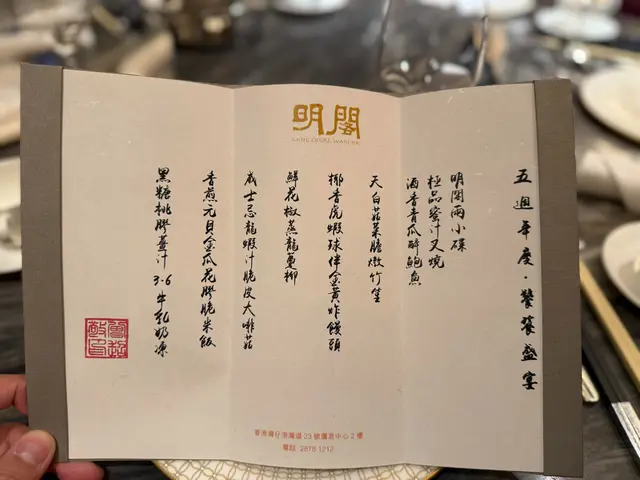 明閣
MING COURT, WANCHAI
五週年度·饕餮盛宴
明閣兩小碟
極品蜜汁叉燒
酒香青瓜醉鮑魚
天白菇菜膽燉竹笙
椰香虎蝦球伴金黃炸饅頭
鮮花椒蒸龍躉柳
威士忌龍蝦汁脆皮大啡菇
香煎元貝金瓜花膠脆米飯
黑糖桃膠薑汁3.6牛乳奶凍
香港灣仔港灣道 23 號鷹君中心 2 樓
電話 2878 1212